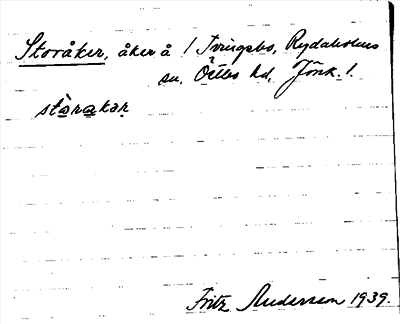 Storåker, åker å 1 Tvingsbo, Rydaholms
sn. Östbo hd, Jönk. l.
stòrakər
Fritz Andersson 1939.